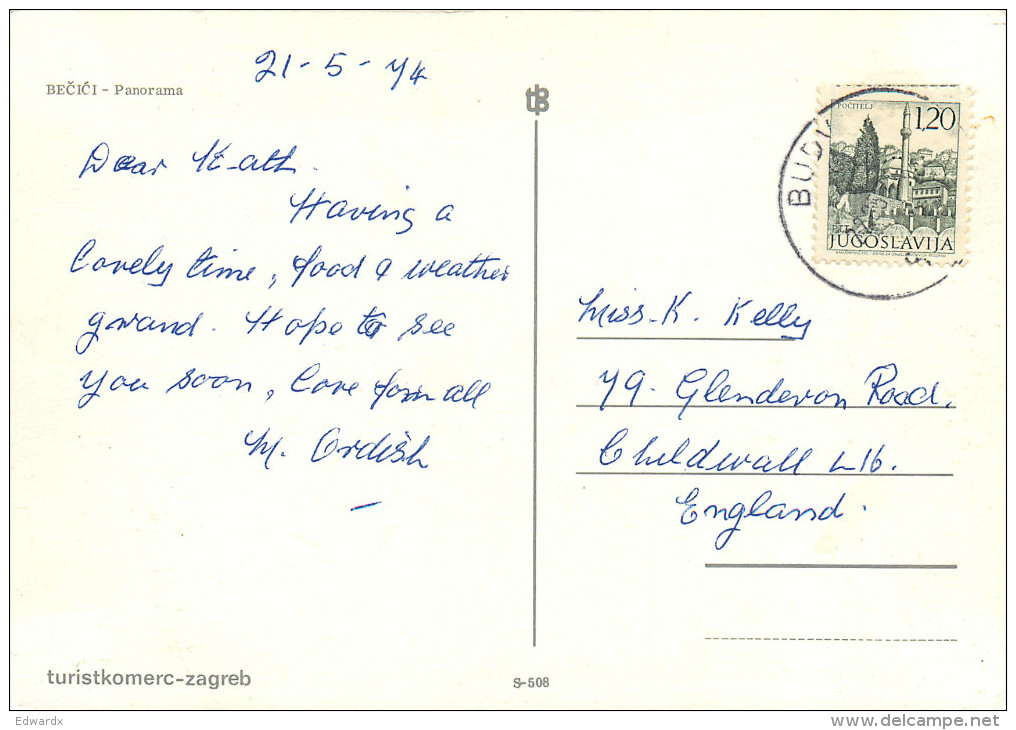 21-5-74
BEČIĆI - Panorama
Dear Kath.
Having a
Lovely time, food & weather
grand. Hope to see
you soon, Love from all
M. Ordish
turistkomerc-zagreb
S-508
POČITELJ
1,20
JUGOSLAVIJA
BUDV
Miss. K. Kelly
79. Glendevon Road.
Childwall L16.
England.
Edwardx
delcampe.net